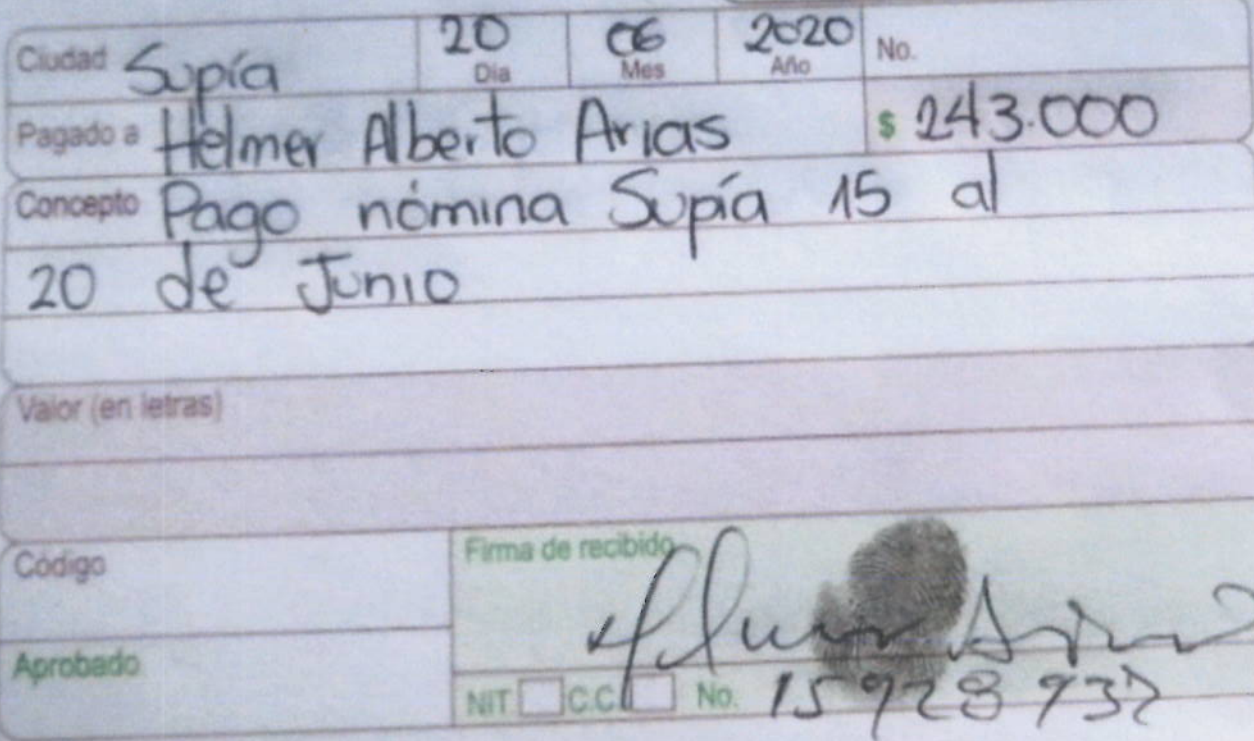 Ciudad Supía 20 Dia 06 Mes 2020 Año No.
Pagado a Helmer Alberto Arias $ 243.000
Concepto Pago nómina Supía 15 al
20 de Junio
Valor (en letras)
Código
Firma de recibido
Aprobado
NIT C.C. No. 15928937